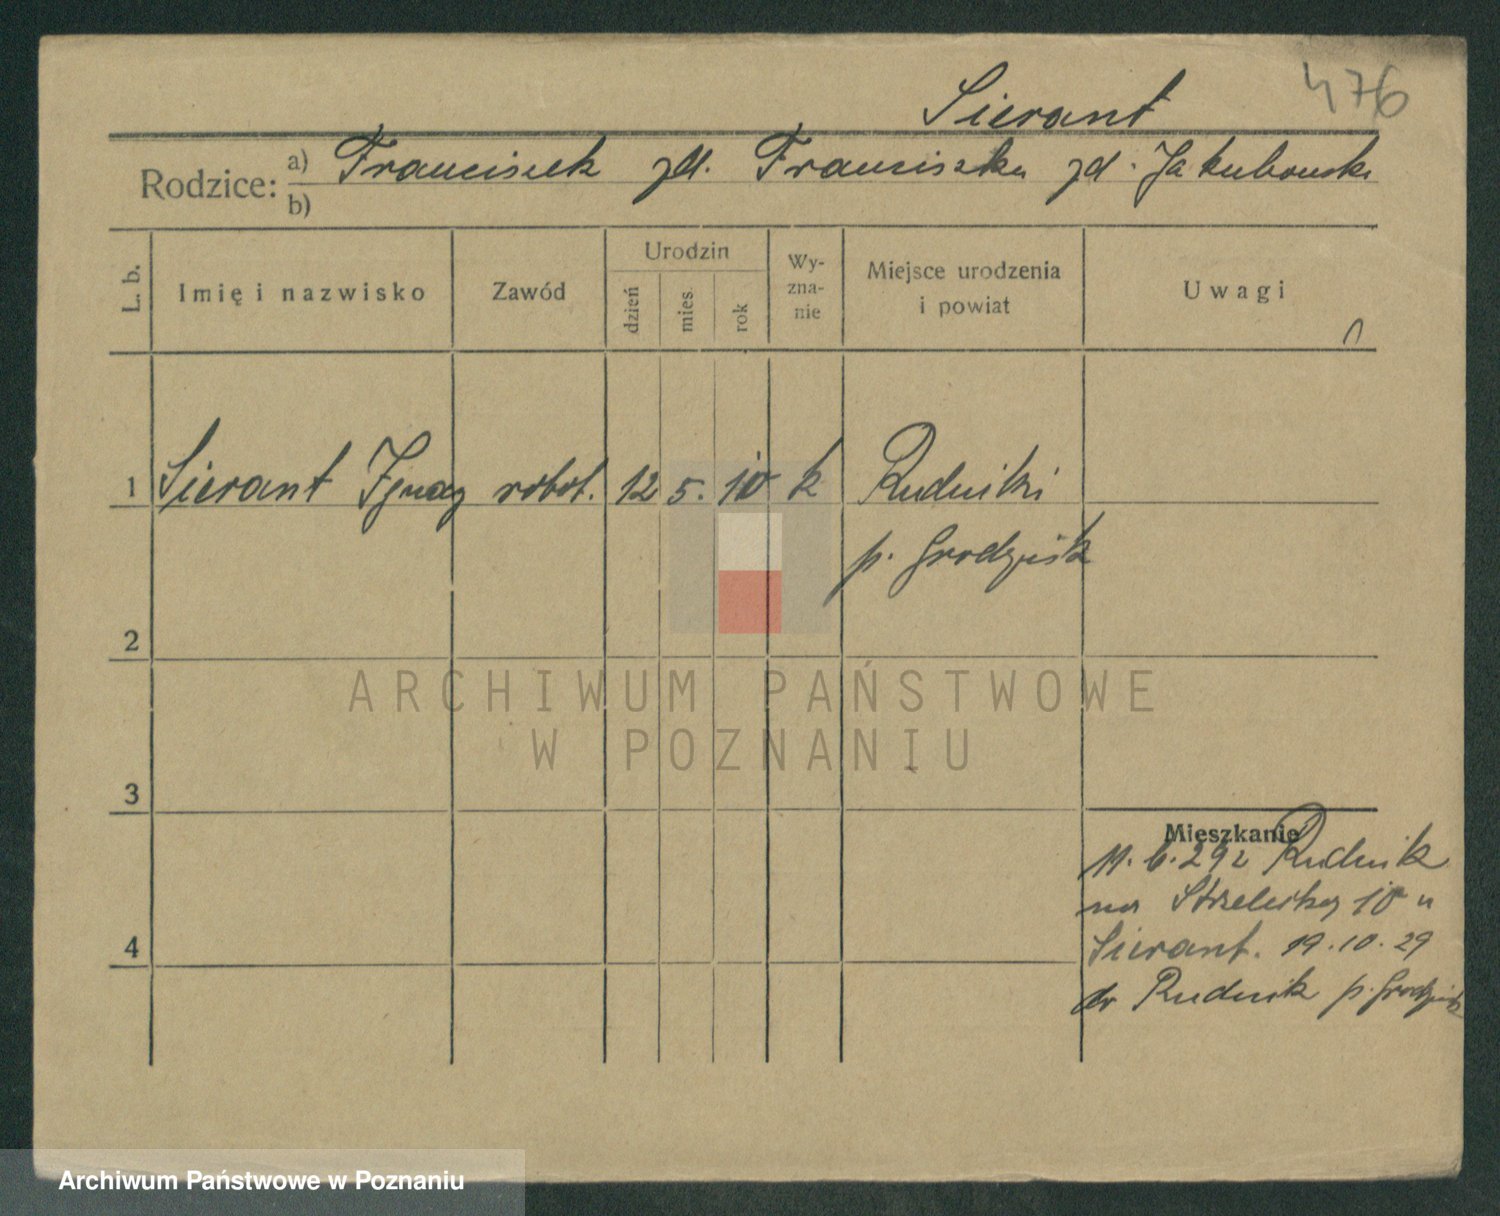 476
Sierant
Rodzice: a) Franciszek zd. Franciszka zd. Jakubowska
b)
L. b. Imię i nazwisko Zawód Urodzin dzień mies. rok Wyznanie Miejsce urodzenia i powiat Uwagi
1 Sierant Ignacy robot. 12 5. 10 k Rudniki
p. Grodzisk
2
ARCHIWUM PAŃSTWOWE
W POZNANIU
3
Mieszkanie
11.6.29 z Rudnik
na Strzelecką 10 u
Sierant. 19.10.29
do Rudnik p. Grodzisk
4
Archiwum Państwowe w Poznaniu